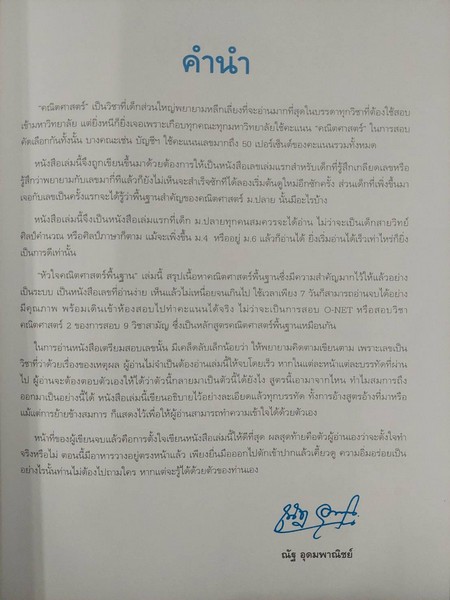 คำนำ
"คณิตศาสตร์" เป็นวิชาที่เด็กส่วนใหญ่พยายามหลีกเลี่ยงที่จะอ่านมากที่สุดในบรรดาทุกวิชาที่ต้องใช้สอบ
เข้ามหาวิทยาลัย แต่ยิ่งหนีก็ยิ่งเจอเพราะเกือบทุกคณะทุกมหาวิทยาลัยใช้คะแนน "คณิตศาสตร์" ในการสอบ
คัดเลือกกันทั้งนั้น บางคณะเช่น บัญชีฯ ใช้คะแนนเลขมากถึง 50 เปอร์เซ็นต์ของคะแนนรวมทั้งหมด
หนังสือเล่มนี้จึงถูกเขียนขึ้นมาด้วยต้องการให้เป็นหนังสือเลขเล่มแรกสำหรับเด็กที่รู้สึกเกลียดเลขหรือ
รู้สึกว่าพยายามกับเลขมากี่ทีแล้วก็ยังไม่เห็นจะสำเร็จซักทีได้ลองเริ่มต้นดูใหม่อีกซักครั้ง ส่วนเด็กที่เพิ่งขึ้นมา
เจอกับเลขเป็นครั้งแรกจะได้รู้ว่าพื้นฐานสำคัญของคณิตศาสตร์ ม.ปลาย นั้นมีอะไรบ้าง
หนังสือเล่มนี้จึงเป็นหนังสือเล่มแรกที่เด็ก ม.ปลายทุกคนสมควรจะได้อ่าน ไม่ว่าจะเป็นเด็กสายวิทย์
ศิลป์คำนวณ หรือศิลป์ภาษาก็ตาม แม้จะเพิ่งขึ้น ม.4 หรืออยู่ ม.6 แล้วก็อ่านได้ ยิ่งเริ่มอ่านได้เร็วเท่าไหร่ก็ยิ่ง
เป็นการดีเท่านั้น
"หัวใจคณิตศาสตร์พื้นฐาน" เล่มนี้ สรุปเนื้อหาคณิตศาสตร์พื้นฐานซึ่งมีความสำคัญมากไว้ให้แล้วอย่าง
เป็นระบบ เป็นหนังสือเลขที่อ่านง่าย เห็นแล้วไม่เหนื่อยจนเกินไป ใช้เวลาเพียง 7 วันก็สามารถอ่านจบได้อย่าง
มีคุณภาพ พร้อมเดินเข้าห้องสอบไปทำคะแนนได้จริง ไม่ว่าจะเป็นการสอบ O-NET หรือสอบวิชา
คณิตศาสตร์ 2 ของการสอบ 9 วิชาสามัญ ซึ่งเป็นหลักสูตรคณิตศาสตร์พื้นฐานเหมือนกัน
ในการอ่านหนังสือเตรียมสอบเลขนั้น มีเคล็ดลับเล็กน้อยว่า ให้พยายามคิดตามเขียนตาม เพราะเลขเป็น
วิชาที่ว่าด้วยเรื่องของเหตุผล ผู้อ่านไม่จำเป็นต้องอ่านเล่มนี้ให้จบโดยเร็ว หากในแต่ละหน้าแต่ละบรรทัดที่ผ่าน
ไป ผู้อ่านจะต้องตอบตัวเองให้ได้ว่าตัวนี้กลายมาเป็นตัวนี้ได้ยังไง สูตรนี้เอามาจากไหน ทำไมสมการถึง
ออกมาเป็นอย่างนี้ได้ หนังสือเล่มนี้เขียนอธิบายไว้อย่างละเอียดแล้วทุกบรรทัด ทั้งการอ้างสูตรอ้างที่มาหรือ
แม้แต่การย้ายข้างสมการ ก็แสดงไว้เพื่อให้ผู้อ่านสามารถทำความเข้าใจได้ด้วยตัวเอง
หน้าที่ของผู้เขียนจบแล้วคือการตั้งใจเขียนหนังสือเล่มนี้ให้ดีที่สุด ผลสุดท้ายคือตัวผู้อ่านเองว่าจะตั้งใจทำ
จริงหรือไม่ ตอนนี้มีอาหารวางอยู่ตรงหน้าแล้ว เพียงยื่นมือออกไปตักเข้าปากแล้วเคี้ยวดู ความอิ่มอร่อยเป็น
อย่างไรนั้นท่านไม่ต้องไปถามใคร หากแต่จะรู้ได้ด้วยตัวของท่านเอง
ณัฐ อุดมพาณิชย์